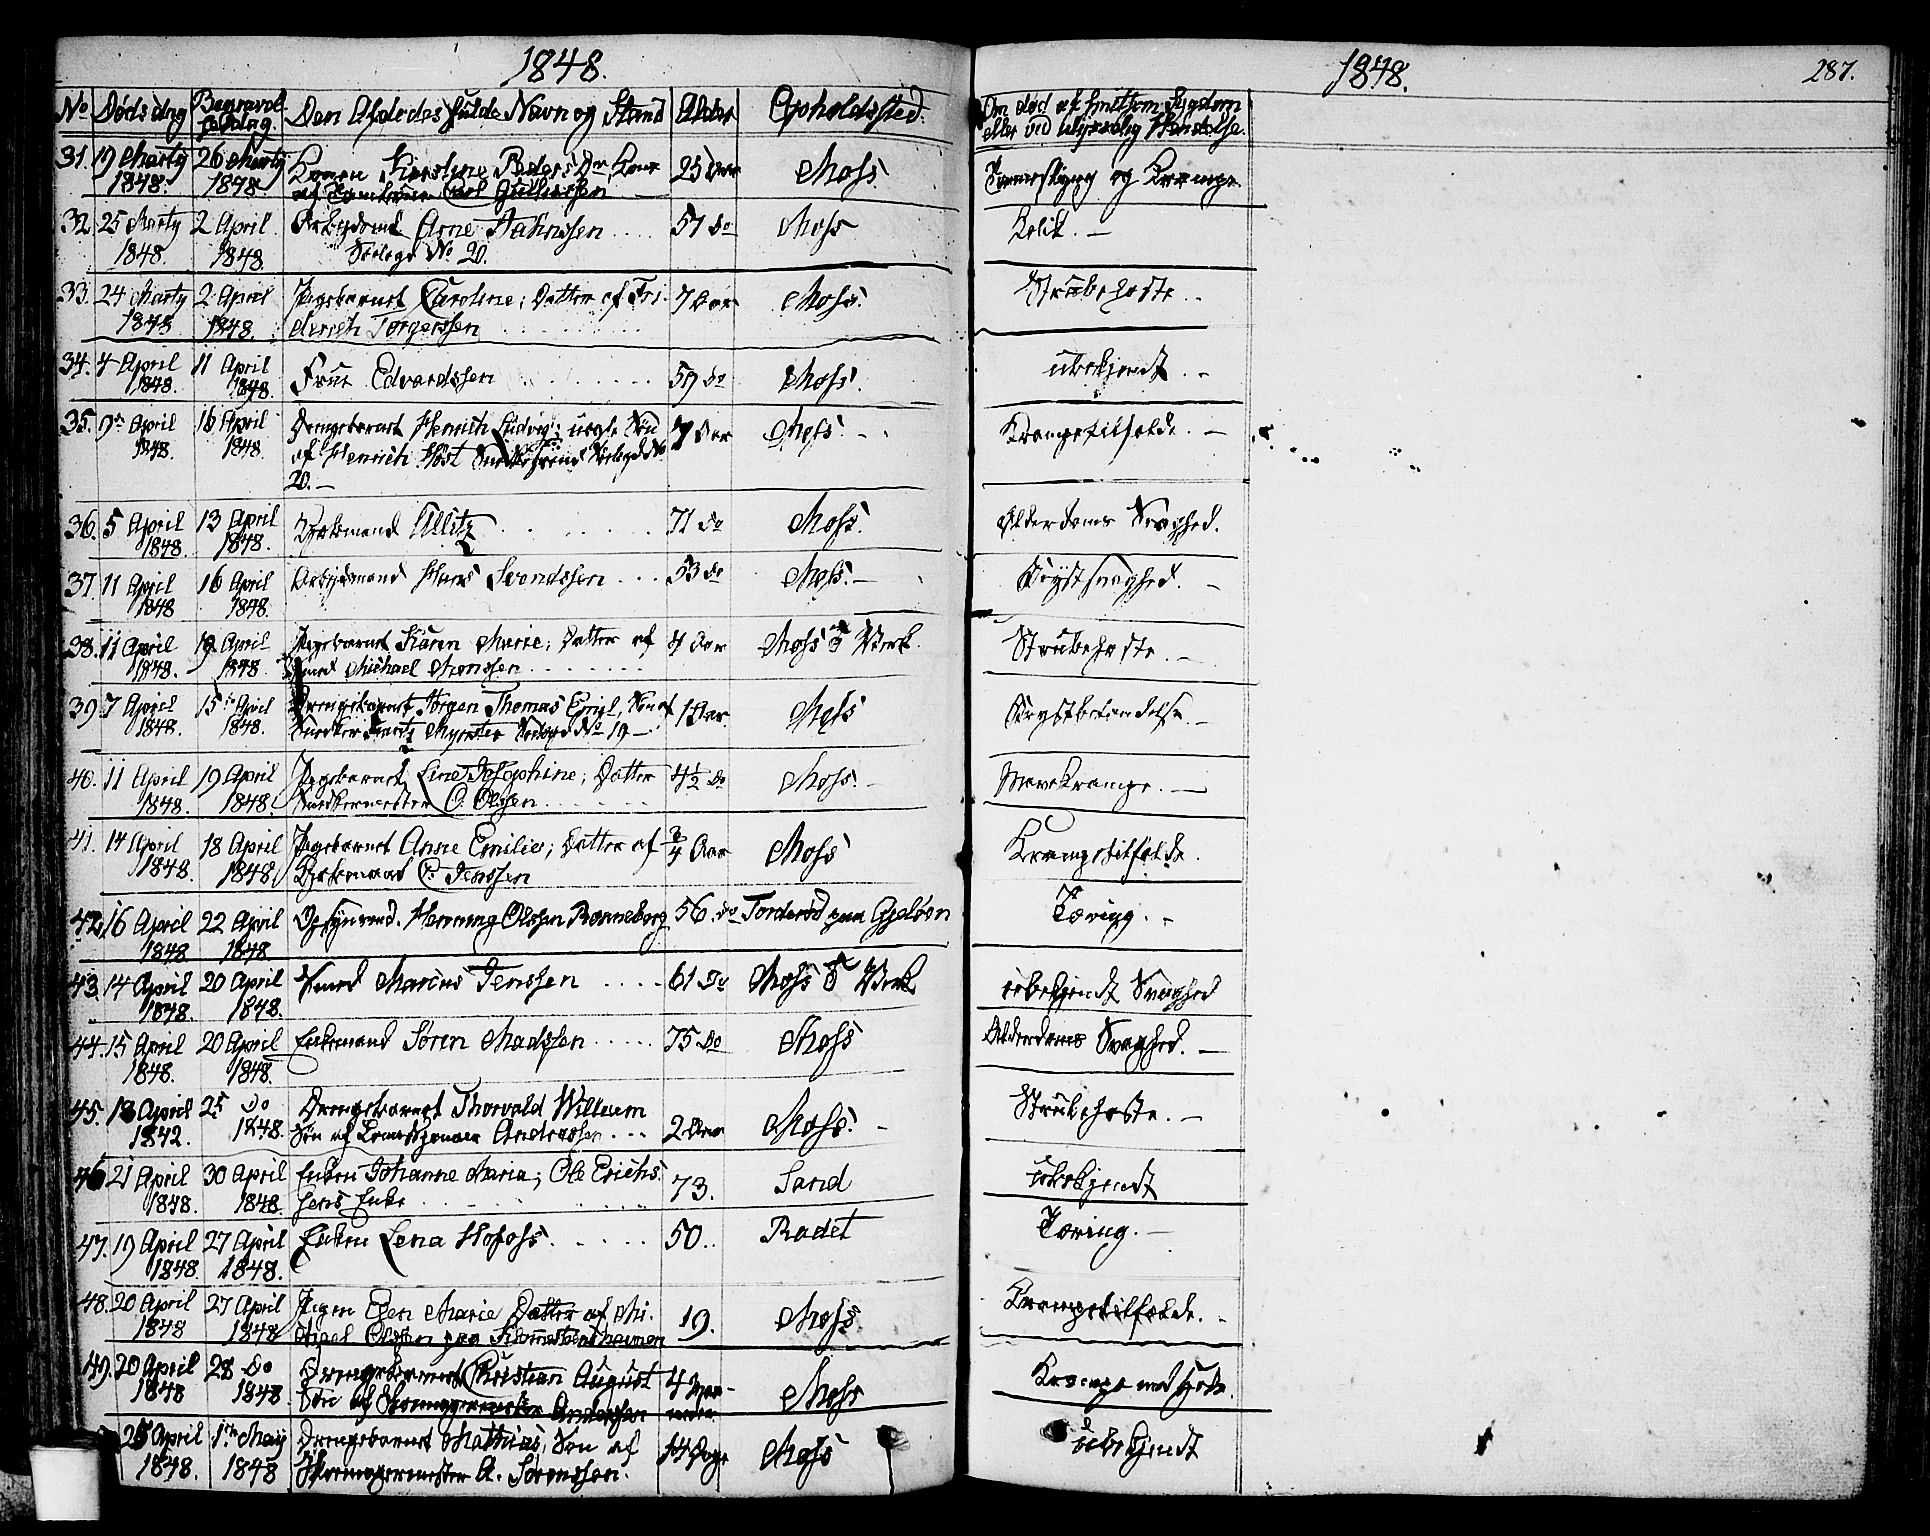 1848.
1848.
287.
No Dødsdag Begravelsesdag. Den Afdødes fulde Navn og Stand Alder Opholdssted. Om død af smitsom Sygdom
eller ved ulykkelig Hændelse.
31. 19 Marty 26 Marty Konen Kirstine Peders Dr. Kone 25 Aar Moss
1848. 1848. af
32. 25 Marty 2 April Arbejdsmd Arne Jahnssen 57 do Moss Kolik. -
1848. 1848. No 20.
33. 24 Marty 2 April Pigebarnet Caroline; Datter af Fri- 7 Aar Moss. Strubehoste.
1848 1848. derich Torgerssen
34. 4 April 11 April Frue Edvardssen 59 do Moss. ubekjendt. -
1848. 1848.
35. 9de April 16 April Drengebarnet Henrich Ludvig; uegte Søn 7 Aar Moss. Krampetilfælde. -
1848. 1848. af Henrich Høst
20. -
36. 5 April 13 April 71 do Moss. Alderdoms Svaghed.
1848. 1848.
37. 11 April 16 April Arbejdsmand Hans Svendssen 53 do Moss. - Brystsvaghed. -
1848 1848.
38. 11 April 19 April Pigebarnet Karen Marie; Datter af 4 Aar Moss Verk. Strubehoste. -
1848. 1848. Smed Michael Monssen
39. 7 April 15de April Drengebarnet Jørgen Thomas Emil, Søn af 1 Aar. Moss Brystbetændelse. -
1848. 1848. Snedker No 19 -
40. 11 April 19 April Pigebarnet Line Josephine; Datter 4½ do Moss. Mavekrampe. -
1848. 1848. Snedkermester O. Olssen
41. 14 April 18 April Pigebarnet Anne Emilie; Datter af ¾ Aar Moss Krampetilfælde.
1848. 1848. Jenssen
42. 16 April 22 April Opsynsmd. Henning Olssen Ronneberg 56. do Torderød paa Gjeløen Tæring. -
1848 1848
43. 14 April 20 April Smed Marcus Jenssen 61 do Moss Verk ubekjendt Svaghed
1848. 1848.
44. 15 April 20 April Enkemand Søren Madssen 75 do Moss Alderdoms Svaghed. -
1848. 1848.
45. 18 April 25 do Drengebarnet Thorvald Willeum Strubehoste. -
1842. 1848. Søn af Andreassen 2 Aar Moss.
46 21 April 30 April Enken Johanne Maria; Ole Erichs- 73. Sand ubekjendt
1848. 1848. sens Enke
47. 19 April 27 April Enken Lena Hofoss. 50.. Radet Tæring. -
1848. 1848.
48. 20 April 27 April Pigen Elen Marie Datter af Mi- 19. Moss. Krampetilfælde. -
1848 1848 Olssen paa
49. 20 April 28 do Drengebarnet Christian August 4 Maa- Moss Krampe
1848 1848. Søn af Anderssen neder.
25 April 1te May Drengebarnet Mathias, Søn af 14 Dage Moss ubekjendt
1848. 1848 A. Sørenssen.